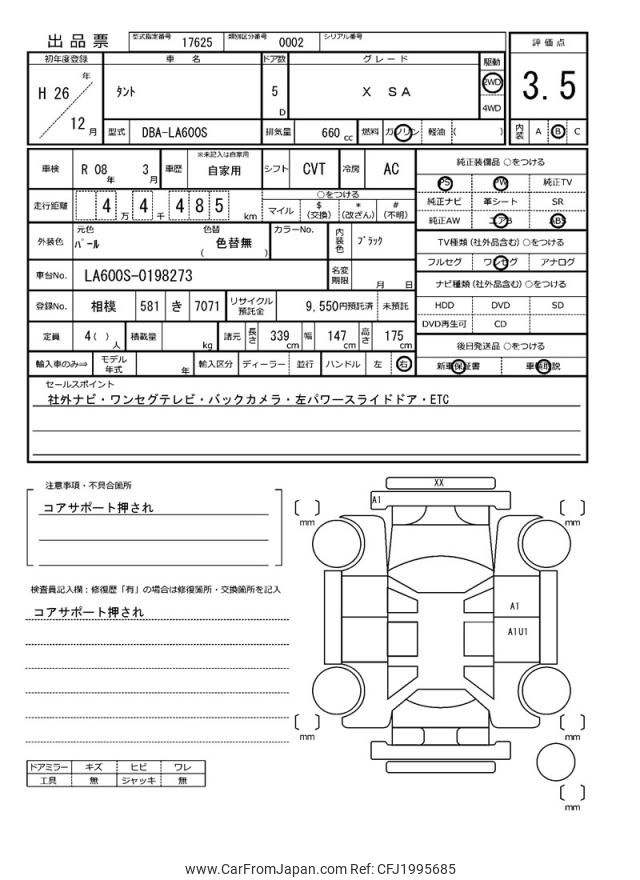 出品票 型式指定番号 17625 類別区分番号 0002 シリアル番号
初年度登録 車名 ドア数 グレード 駆動 評価点
H 26 年 12 月 タント 5 D X SA 2WD 4WD 3.5
型式 DBA-LA600S 排気量 660 cc 燃料 ガソリン 軽油 ( ) 内装 A B C
車検 R 08 年 3 月 車歴 ※未記入は自家用 自家用 シフト CVT 冷房 AC
純正装備品 ○をつける
PS PW 純正TV
走行距離 4 万 4 千 4 8 5 km ○をつける
マイル $ (交換) * (改ざん) # (不明)
純正ナビ 革シート SR
純正AW エアB ABS
外装色 元色 パール 色替 色替無 ( ) カラーNo. 内装色 ブラック
TV種類 (社外品含む) ○をつける
フルセグ ワンセグ アナログ
車台No. LA600S-0198273 名変期限 月 日
ナビ種類 (社外品含む) ○をつける
登録No. 相模 581 き 7071 リサイクル預託金 9,550円預託済 未預託
HDD DVD SD
DVD再生可 CD
定員 4( ) 人 積載量 kg 諸元 長さ 339 cm 幅 147 cm 高さ 175 cm
後日発送品 ○をつける
輸入車のみ⇒ モデル年式 年 輸入区分 ディーラー 並行 ハンドル 左 右
新車保証書 車輌取説
セールスポイント
社外ナビ・ワンセグテレビ・バックカメラ・左パワースライドドア・ETC
注意事項・不具合箇所
コアサポート押され
検査員記入欄：修復歴「有」の場合は修復箇所・交換箇所を記入
コアサポート押され
XX
A1
mm
mm
A1
A1U1
mm
mm
mm
ドアミラー キズ ヒビ ワレ
工具 無 ジャッキ 無
www.CarFromJapan.com Ref: CFJ1995685